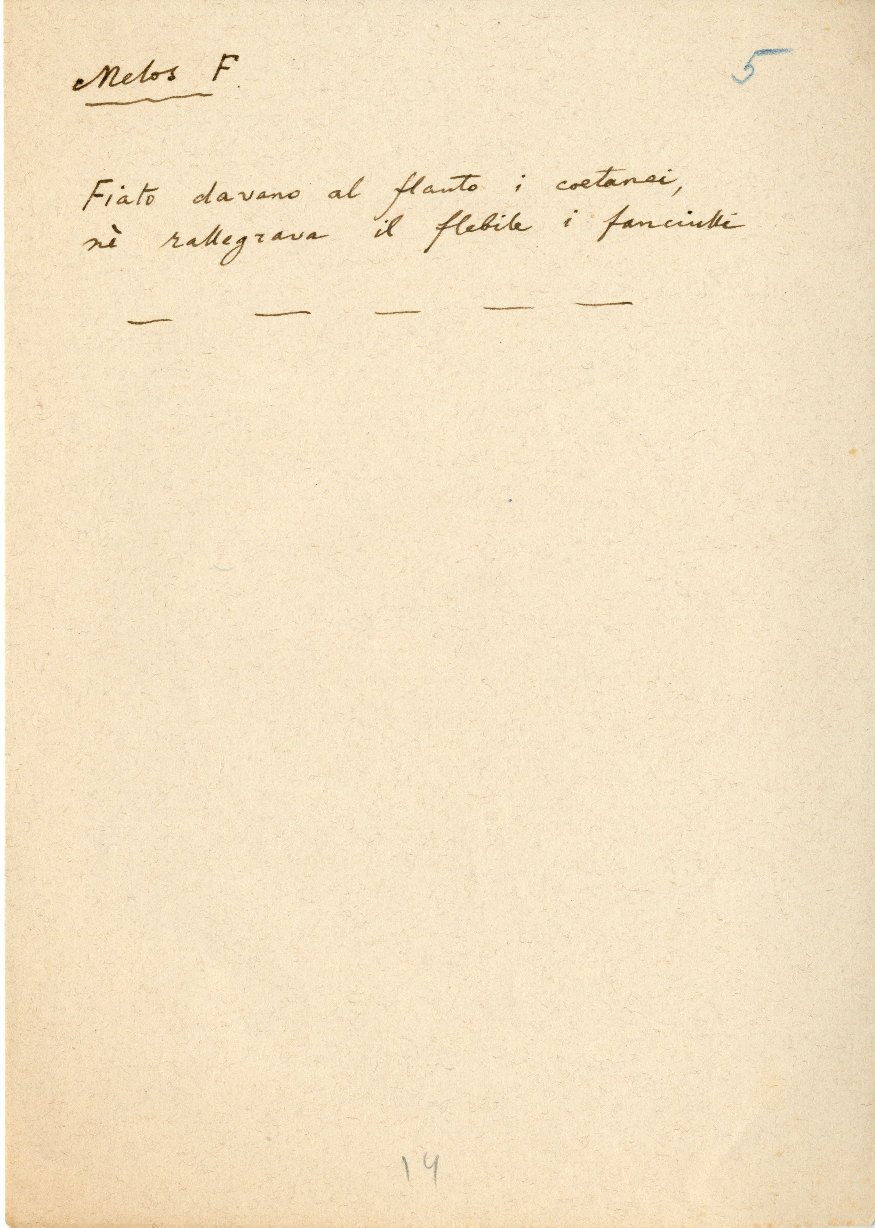 Melos F
5
Fiato davano al flauto i coetanei,
nè rallegrava il flebile i fanciulli
— — — — —
14